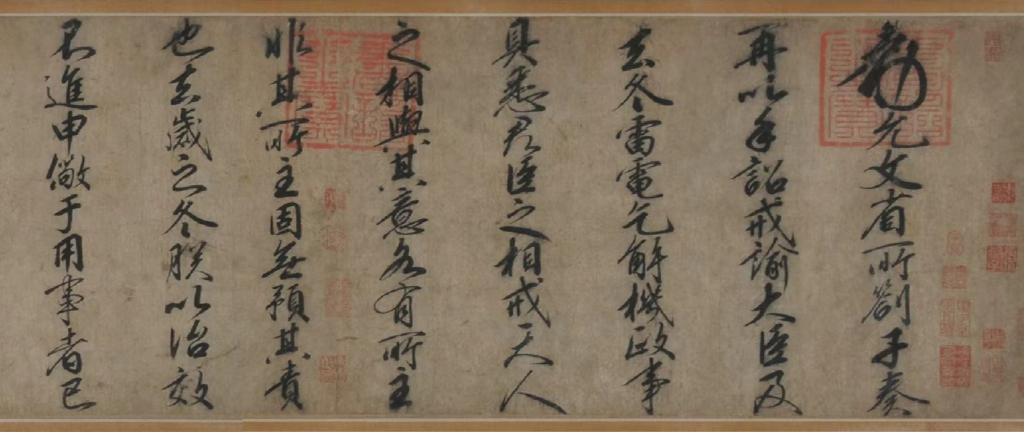 勑允文省所劄子奏
再以手詔戒諭大臣及
去冬雷電乞解機政事
具悉君臣之相戒天人
之相與其意各有所主
非其所主固無預其責
也去歲之冬朕以治效
不進申儆于用事者已